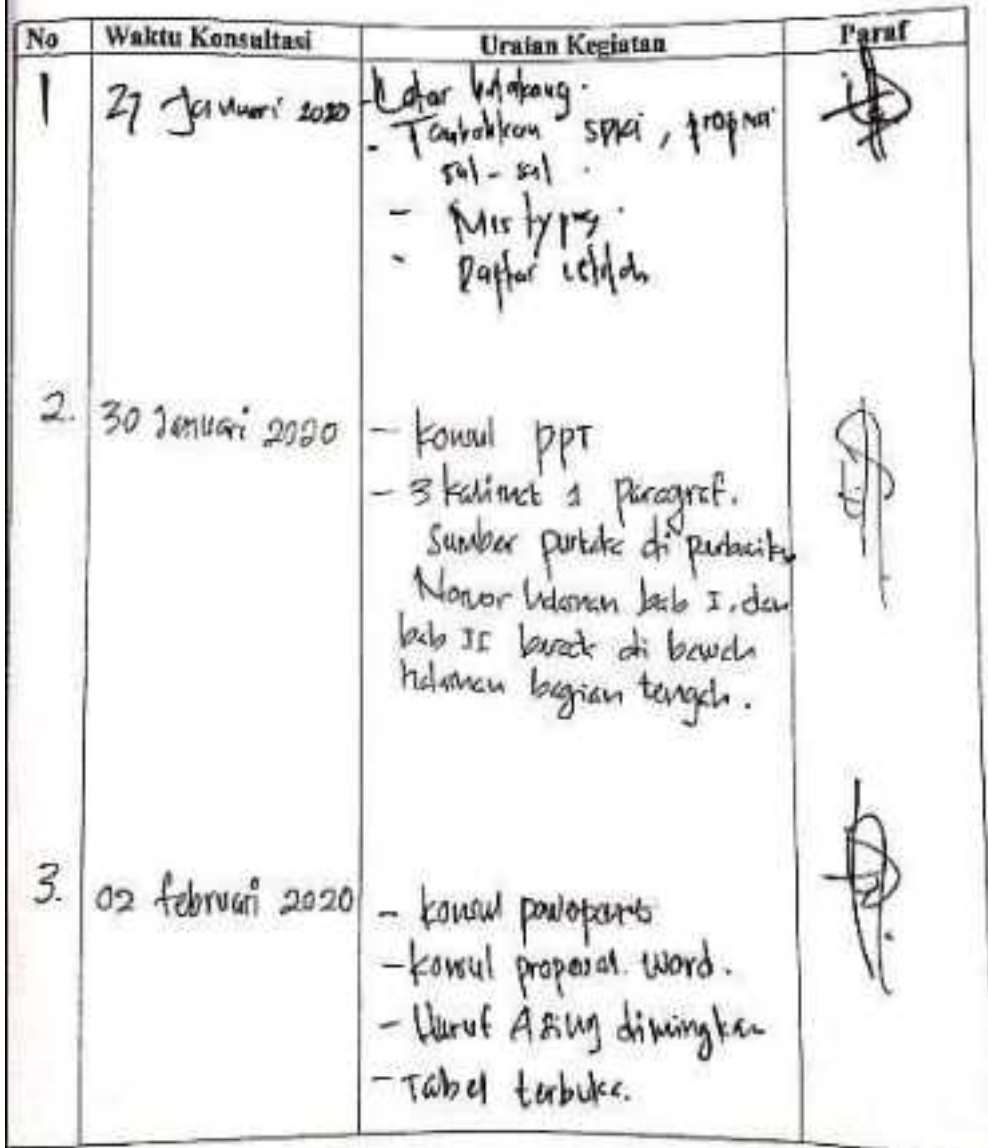 No Waktu Konsultasi Uraian Kegiatan Paraf
1 27 Januari 2020 - Latar belakang.
- Tambahkan spasi,
- Mistyping.
- Daftar istilah
2. 30 Januari 2020 - konsul PPT
- 3 kalimat 1 paragraf.
Sumber pustaka di perbaiki
Nomor halaman bab I. dan
bab II di bawah
halaman bagian tengah.
3. 02 februari 2020 - konsul
- konsul proposal. Word.
- Huruf Asing dimiringkan
- Tabel terbuka.